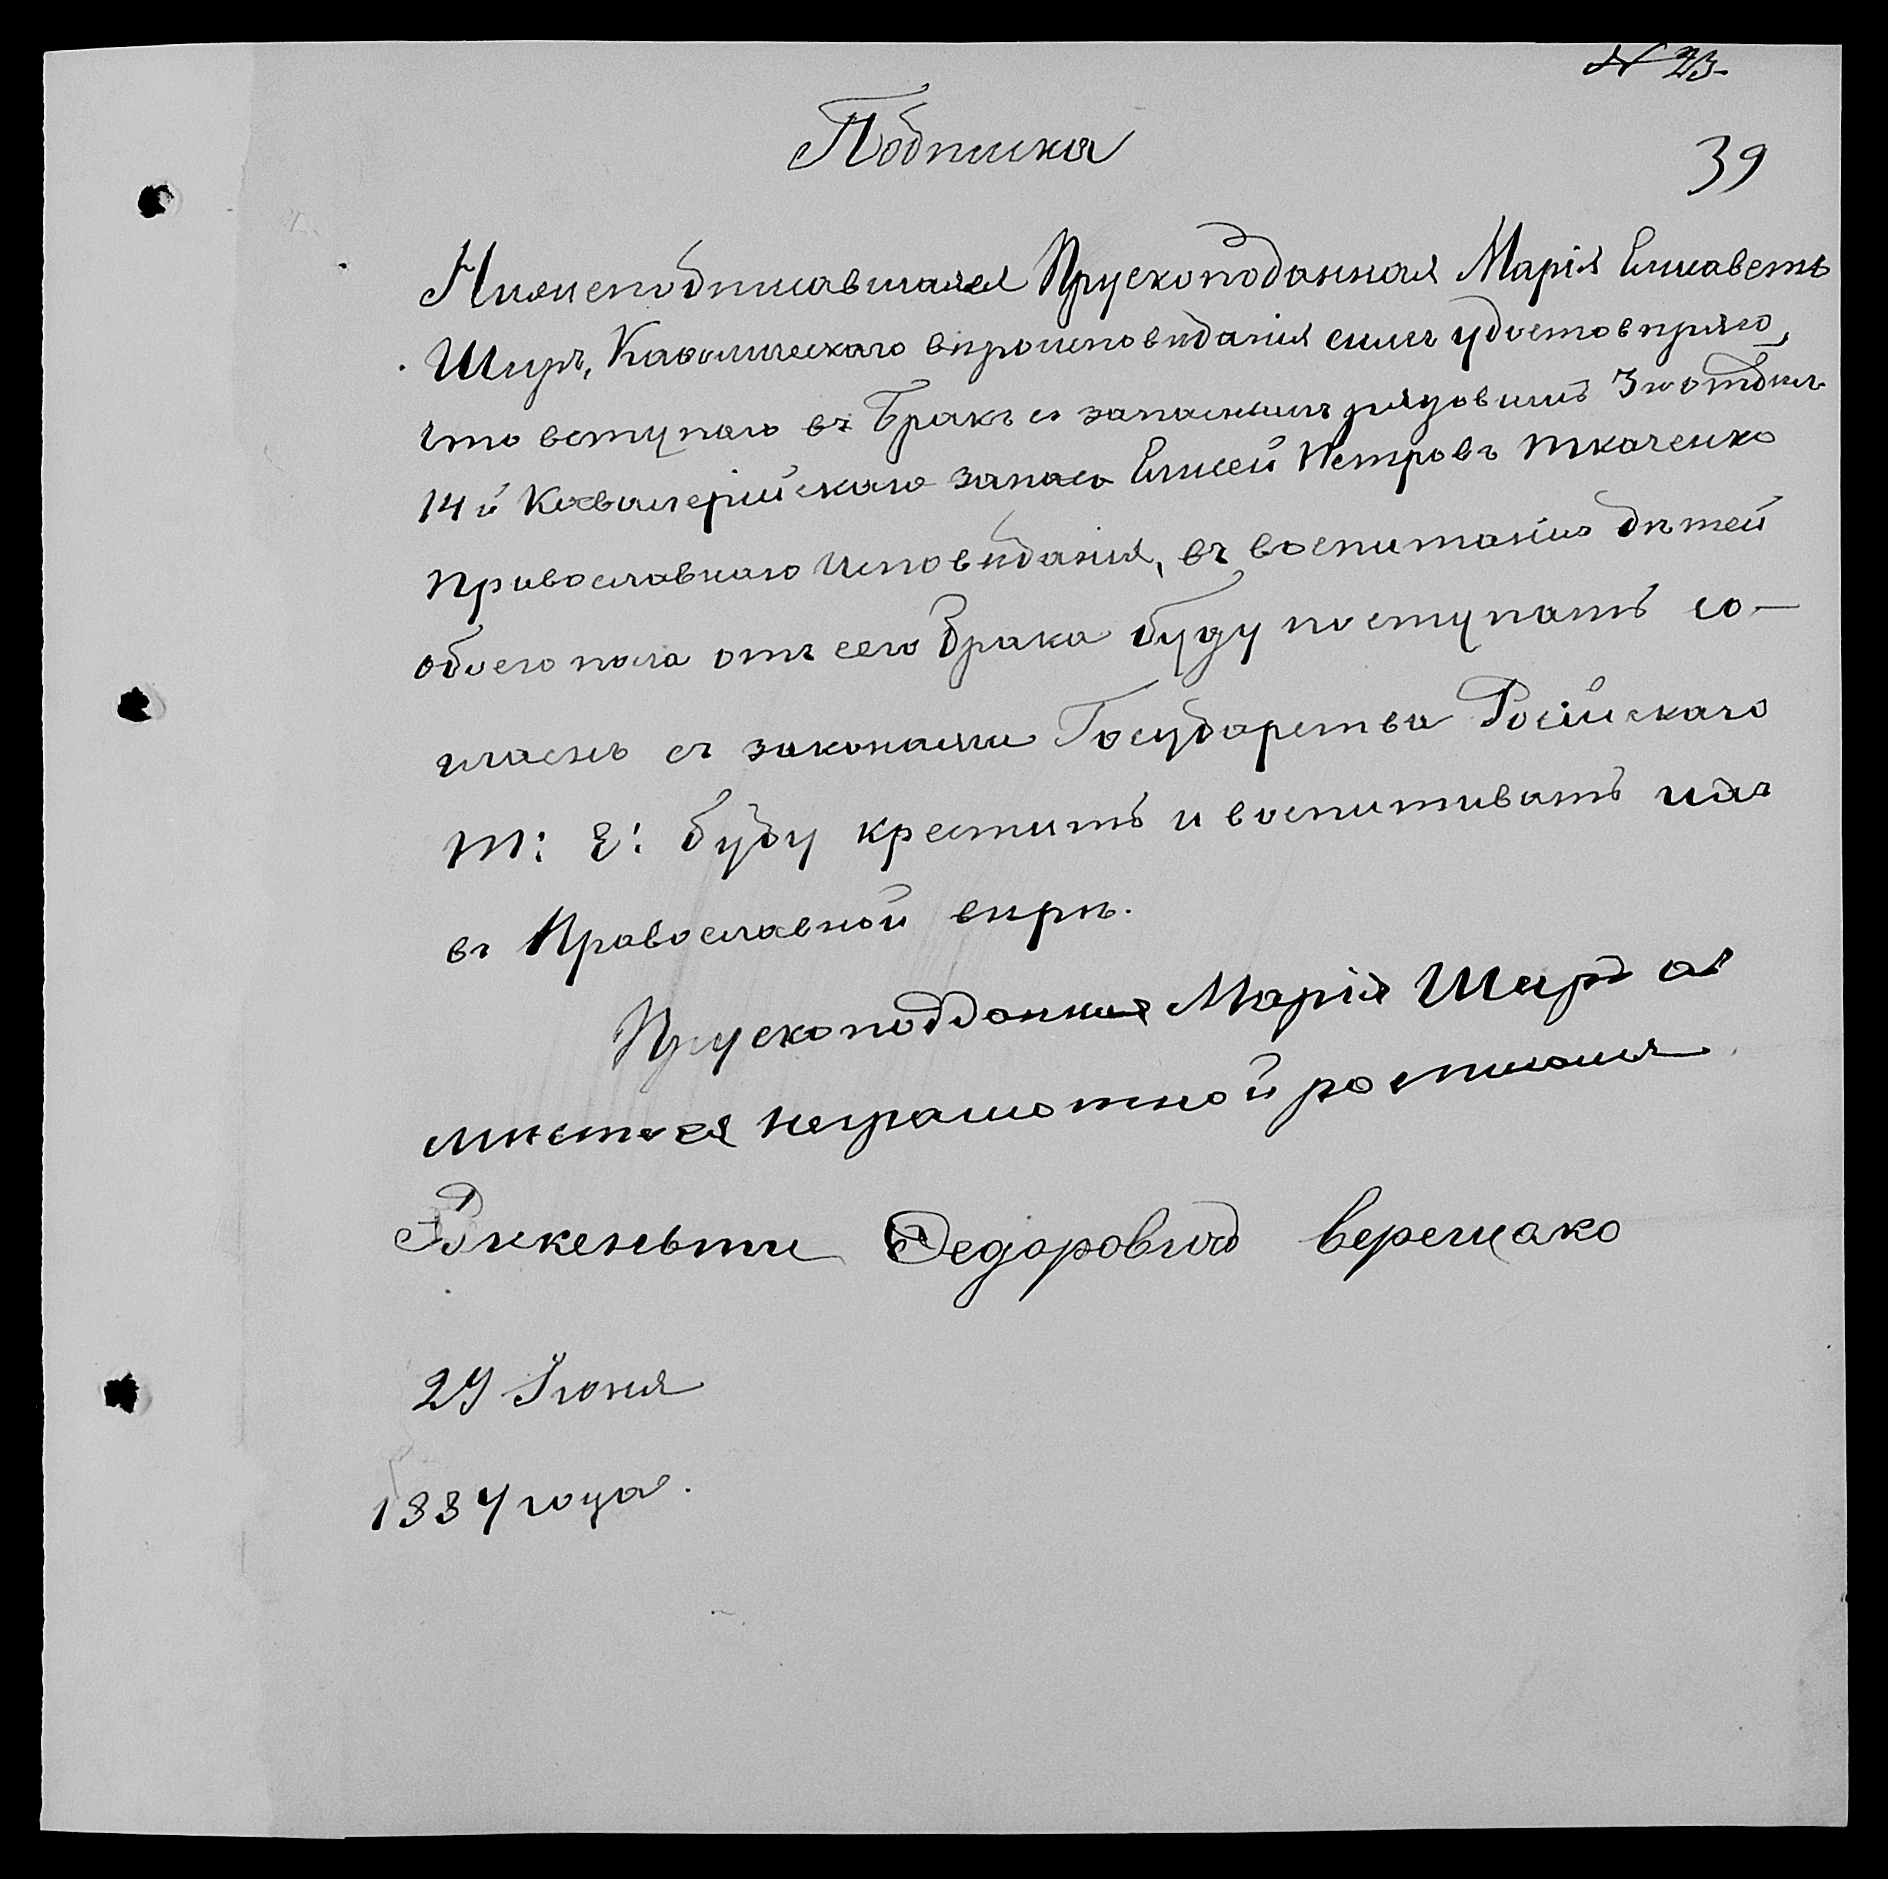 № 23.
Подписка
39
Нижеподписавшаяся Прускоподанная Марія Елисаветъ
Ширъ, Каѳолическаго вѣроисповѣданія симъ удостовѣряю,
что вступаю въ Бракъ съ запаснымъ рядовымъ 3го отдѣл
14й Кавалерійскаго запаса Елисей Петровъ Ткаченко
Православнаго Исповѣданія, въ воспитаніи дѣтей
обоего пола отъ сего Брака буду поступать со-
гласно съ законами Государства Російскаго
т: е: буду крестить и воспитивать ихъ
въ Православной вѣрѣ.
Прускоподданная Марія Ширъ а
мѣсто ея неграмотной росписался
Викеньти Федоровичъ верещако
29 Іюня
1884 года.